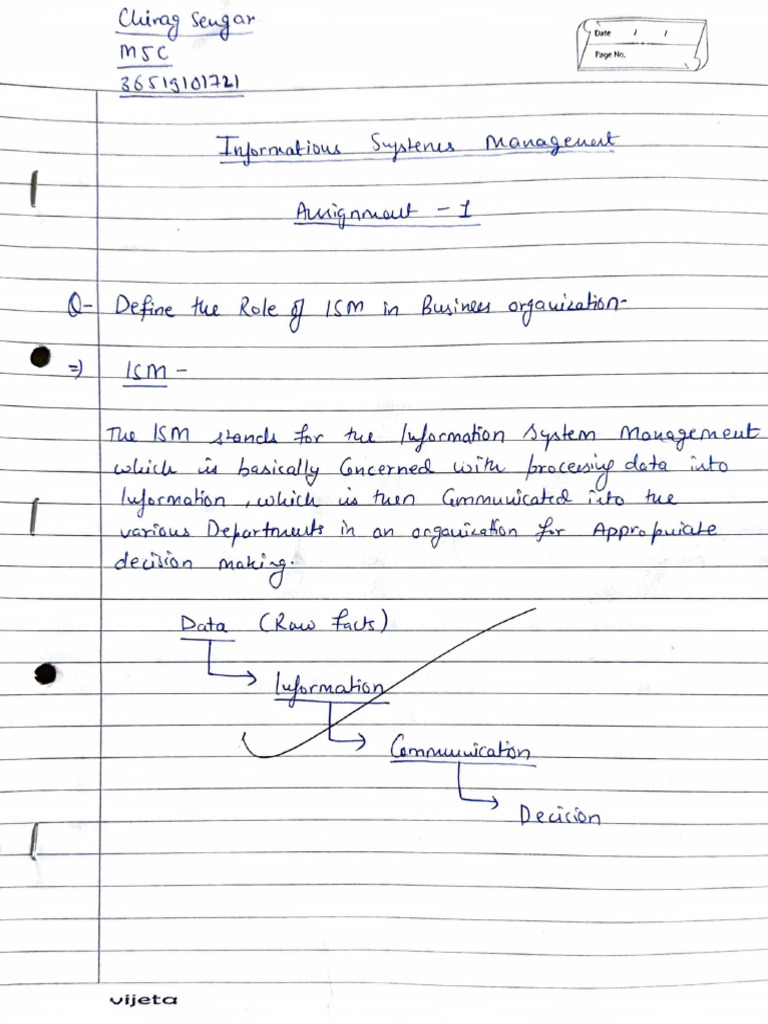 Chirag Sengar
MSC
36519101721
Date / /
Page No.
Informations Systems Management
Assignment - 1
Q- Define the Role of ISM in Business organization-
=) ISM -
The ISM stands for the Information System Management
which is basically Concerned with processing data into
Information, which is then Communicated into the
various Departments in an organization for Appropriate
decision making.
Data (Raw facts)
Information
Communication
Decision
vijeta